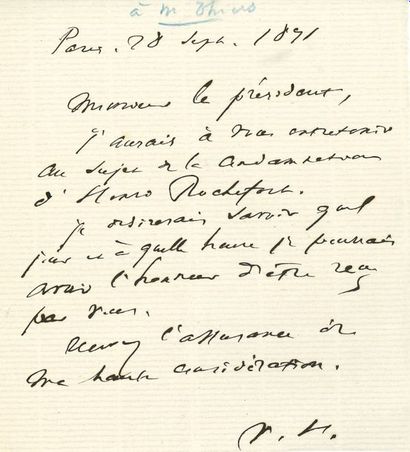 à M Thiers
Paris. 28 sept. 1871
Monsieur le président,
j'aurais à vous entretenir
au sujet de la condamnation
d'Henri Rochefort.
je désirerais savoir quel
jour et à quelle heure je pourrais
avoir l'honneur d'être reçu
par vous.
Recevez l'assurance de
ma haute considération.
V. H.